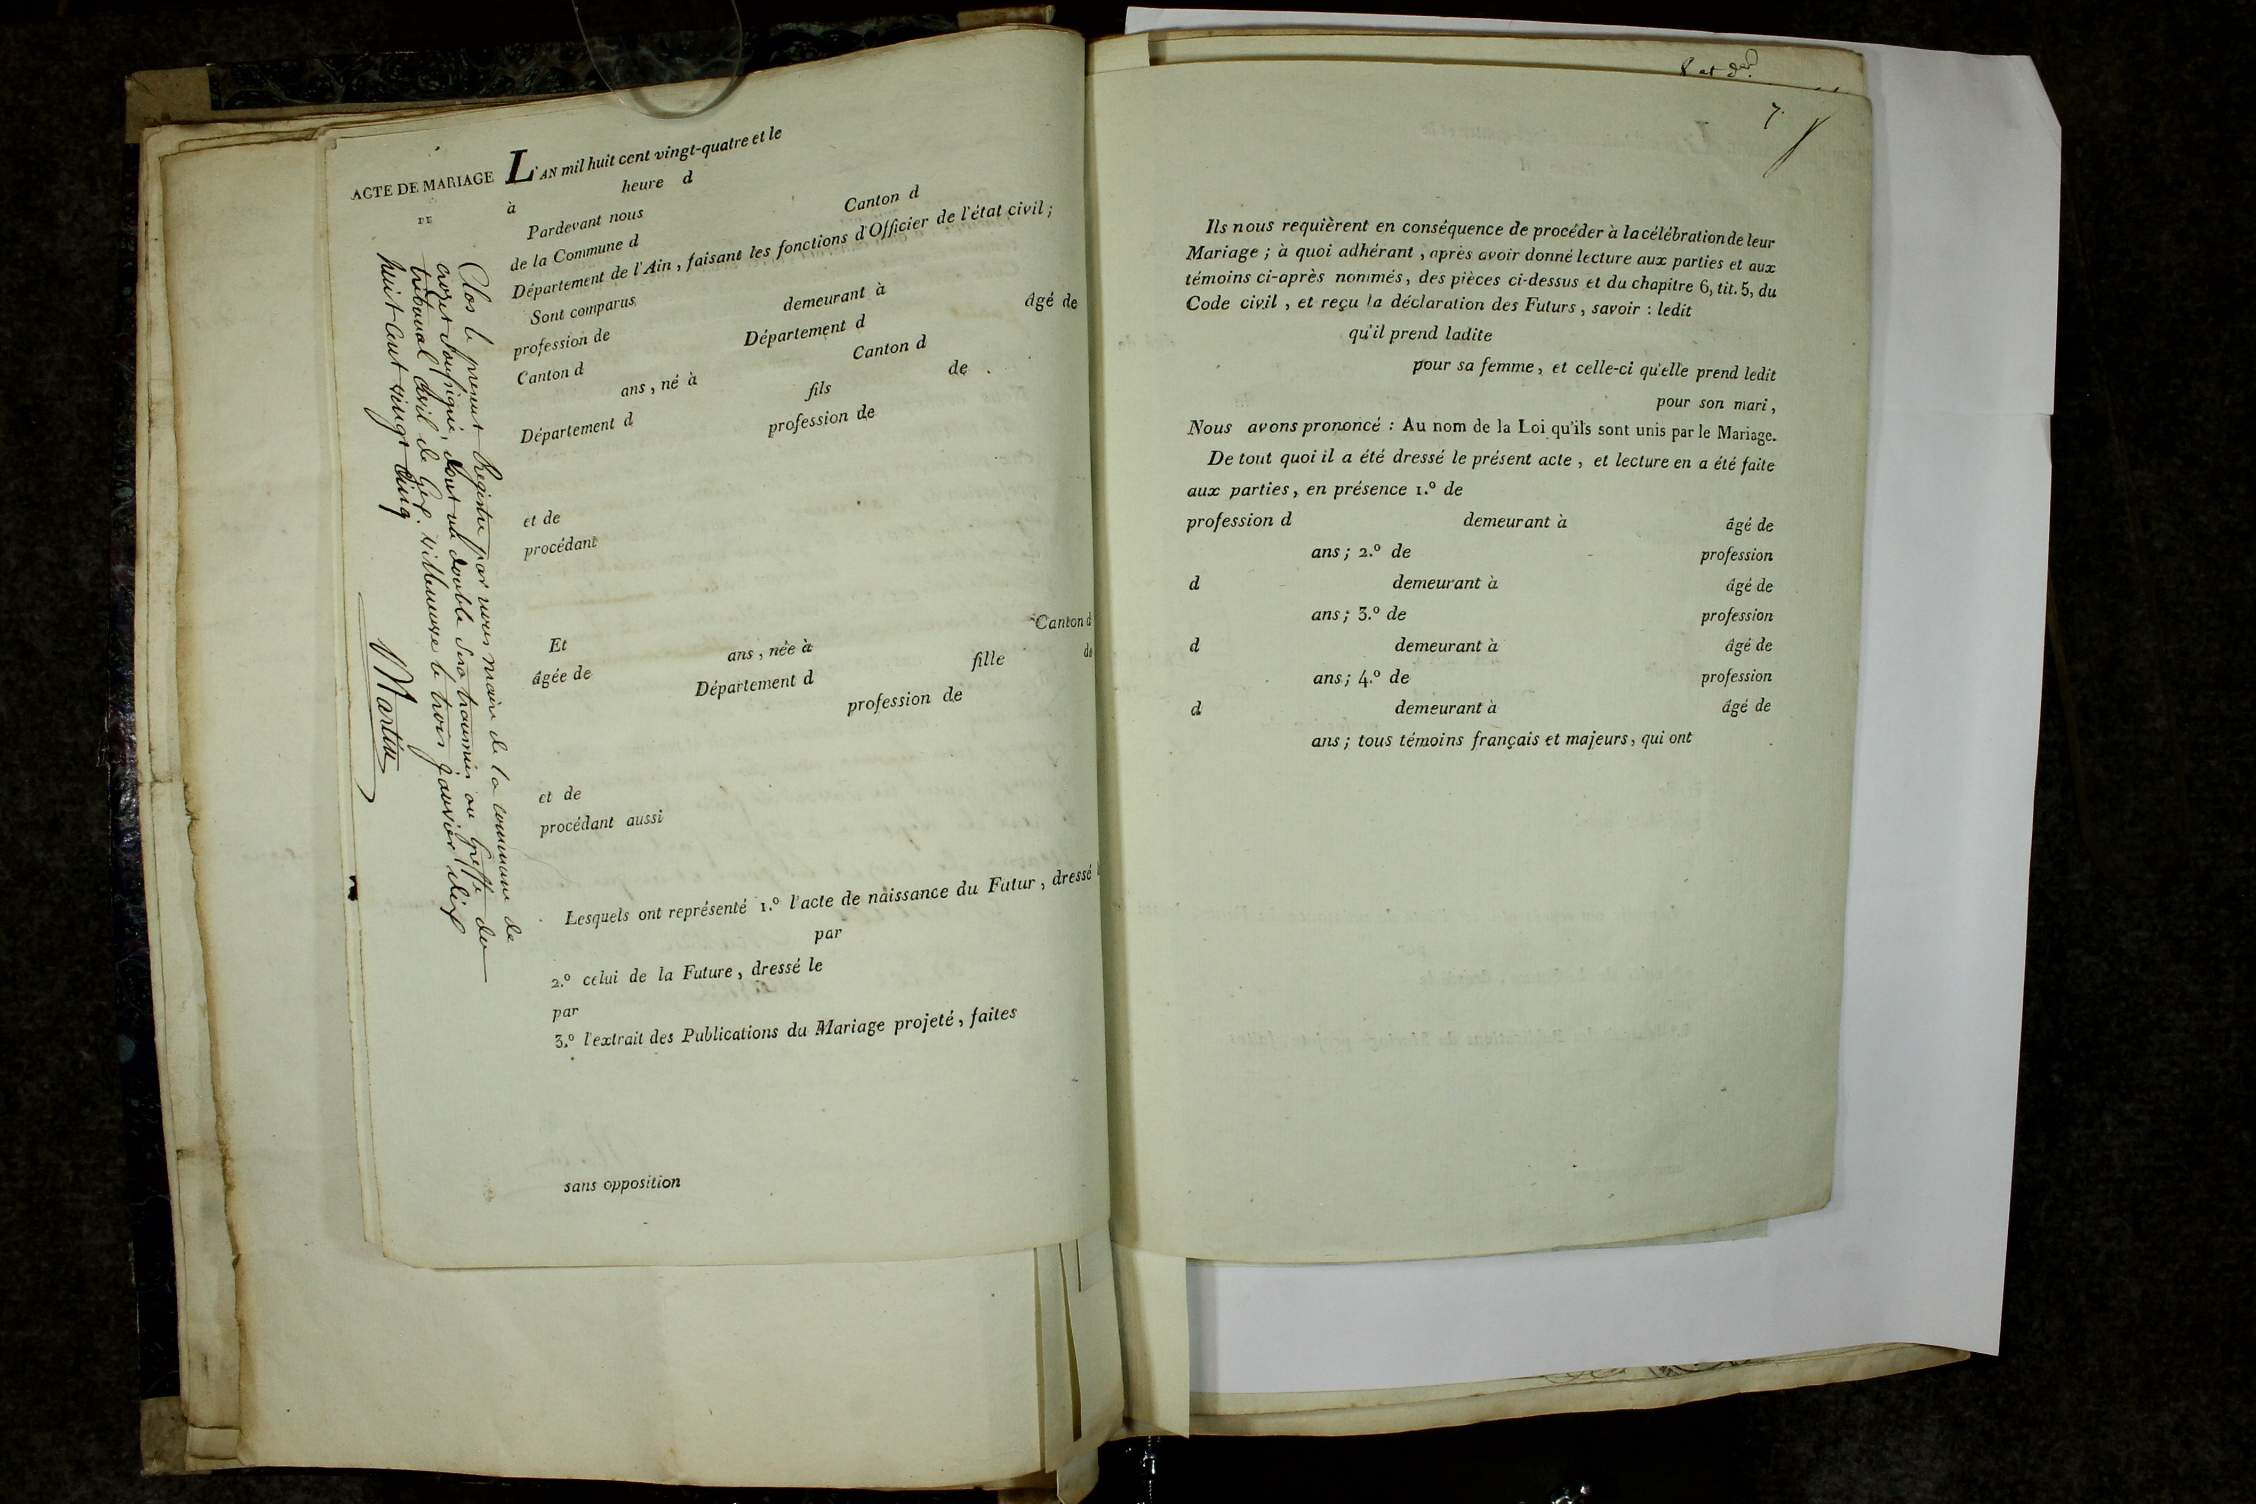 ACTE DE MARIAGE
DE
Clos le present Registre par nous maire de la commune de
crozet soussigné, dont un double sera transmis au greffe du
tribunal civil de Gex. villeneuve le trois janvier dix
huit cent vingt cinq
Martin
L'AN mil huit cent vingt-quatre et le
à heure d
Pardevant nous
de la Commune d Canton d
Département de l'Ain, faisant les fonctions d'Officier de l'état civil;
Sont comparus
profession de demeurant à âgé de
Canton d Département d
ans, né à Canton d
Département d fils de
profession de
et de
procédant
Et
âgée de ans, née à Canton d
Département d fille de
profession de
et de
procédant aussi
Lesquels ont représenté 1.º l'acte de naissance du Futur, dressé
par
2.º celui de la Future, dressé le
par
3.º l'extrait des Publications du Mariage projeté, faites
sans opposition
7.
Ils nous requièrent en conséquence de procéder à la célébration de leur
Mariage; à quoi adhérant, après avoir donné lecture aux parties et aux
témoins ci-après nommés, des pièces ci-dessus et du chapitre 6, tit. 5, du
Code civil, et reçu la déclaration des Futurs, savoir: ledit
qu'il prend ladite
pour sa femme, et celle-ci qu'elle prend ledit
pour son mari,
Nous avons prononcé: Au nom de la Loi qu'ils sont unis par le Mariage.
De tout quoi il a été dressé le présent acte, et lecture en a été faite
aux parties, en présence 1.º de
profession d demeurant à âgé de
ans; 2.º de profession
d demeurant à âgé de
ans; 3.º de profession
d demeurant à âgé de
ans; 4.º de profession
d demeurant à âgé de
ans; tous témoins français et majeurs, qui ont